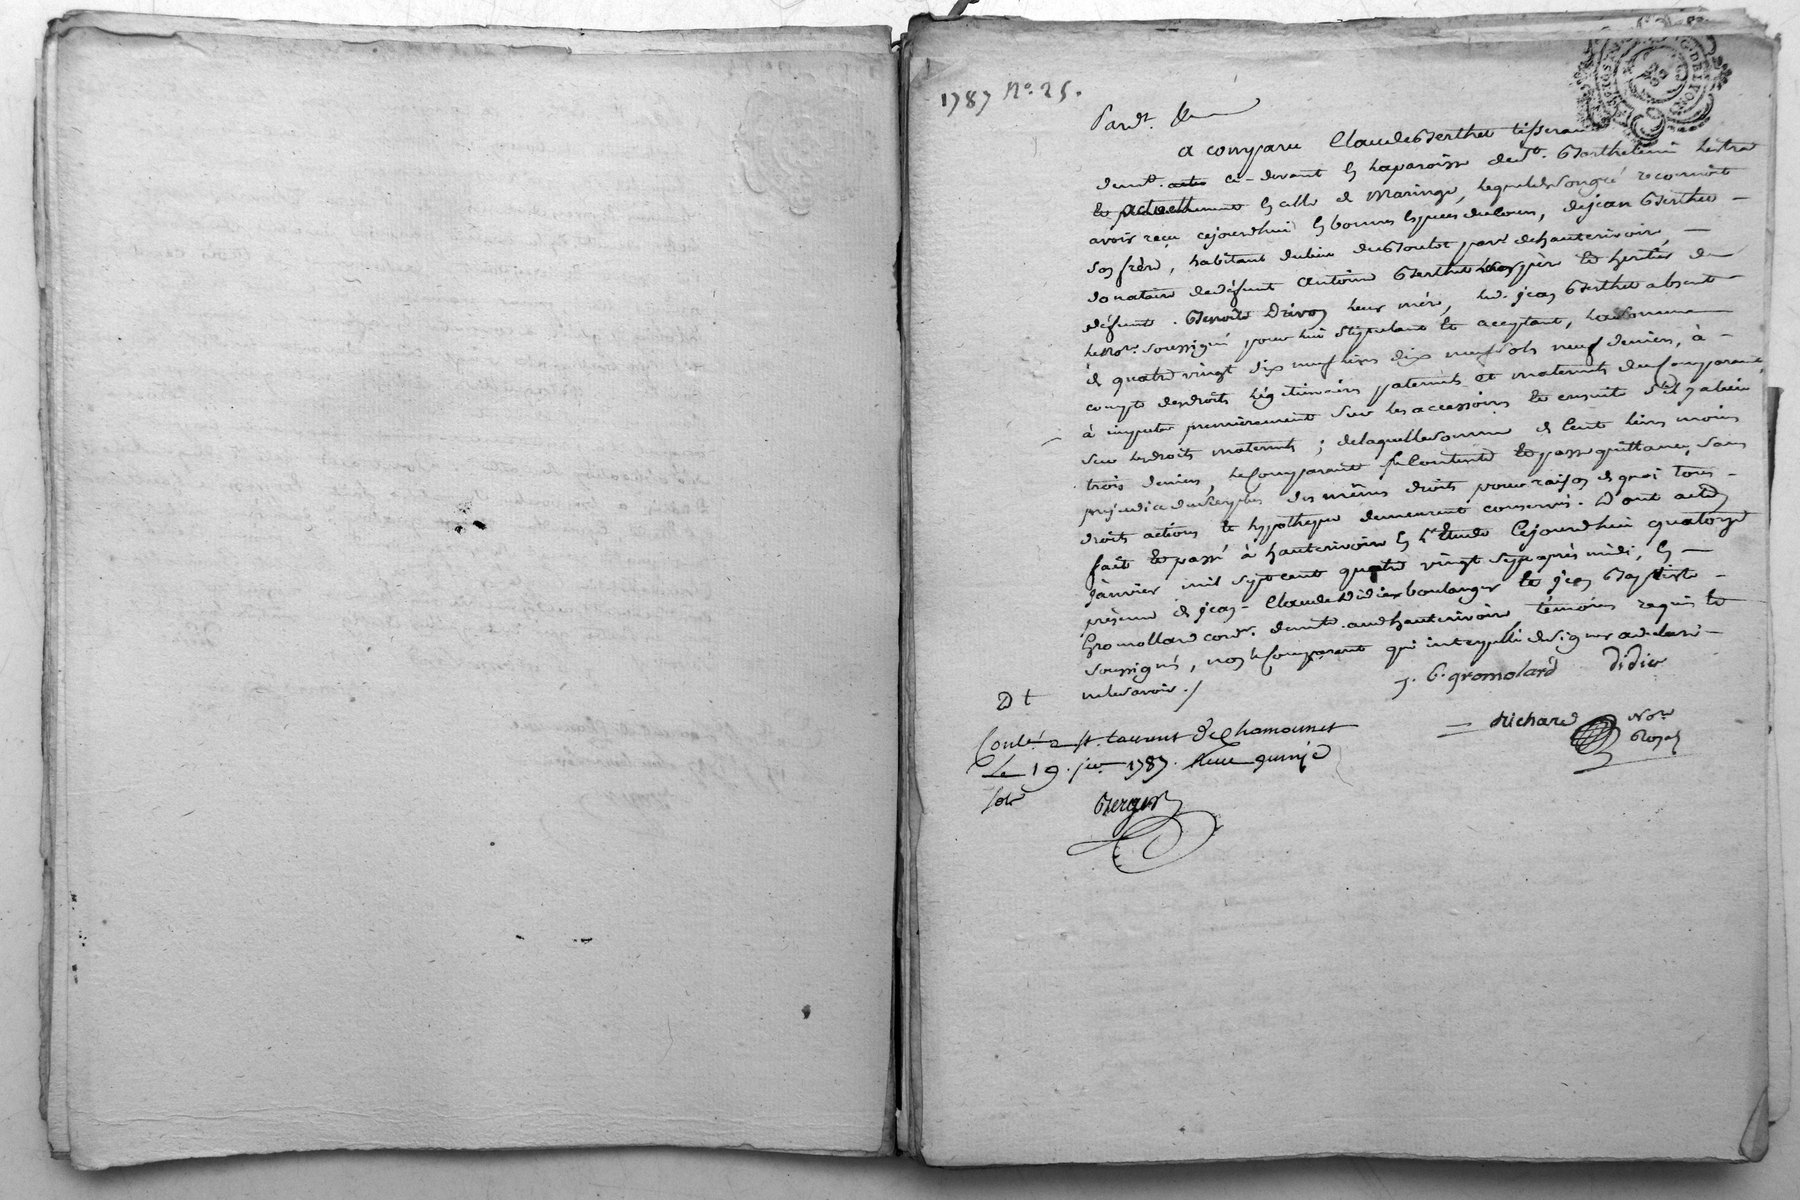 1787 N°. 25.
Pardt.
a comparu Claude Berthet tisseran
demt. ci-devant en la paroisse de St. Barthelemi Lestra
et actuellement en celle de Maringe, lequel de son gré reconnoit
avoir reçu cejourdhui en bonnes especes de cours, de jean Berthet
son frère, habitant du lieu du Boulot par. de hauterivoire,
donataire de défunt antoine Berthet leur père et heritier de
défunte Benoite Drivon leur mère, led. jean Berthet absent
le Nore. soussigné pour lui stipulant et acceptant, la somme
de quatre vingt dix neuf livres dix neuf sols neuf deniers, à
compte des droits légitimaires paternels et maternels du comparant,
à imputer premièrement sur les accessoires et ensuite s'il y a lieu
sur les droits maternels ; de laquelle somme de Cent livres moins
trois deniers, le Comparant se Contente et passe quittance, sans
préjudice du surplus des mêmes droits pour raison de quoi tous
droits actions et hypotheque demeurent conservés. Dont acte
fait et passé à hauterivoire en l'Etude Cejourdhui quatorze
Janvier mil sept cent quatre vingt sept après midi, en
présence de jean-Claude Didier boulanger et jean Baptiste
Gromollard cordr. demt. aud. hauterivoire témoins requis et
soussignés, non le Comparant qui interpellé de signer a declaré
ne le savoir ./
J. B. gromolard Didier
Richard Nore
Royal
Conlé. a st. Laurent de Chamousset
Le 19 jer. 1787. Reçu quinze
sols
Berger